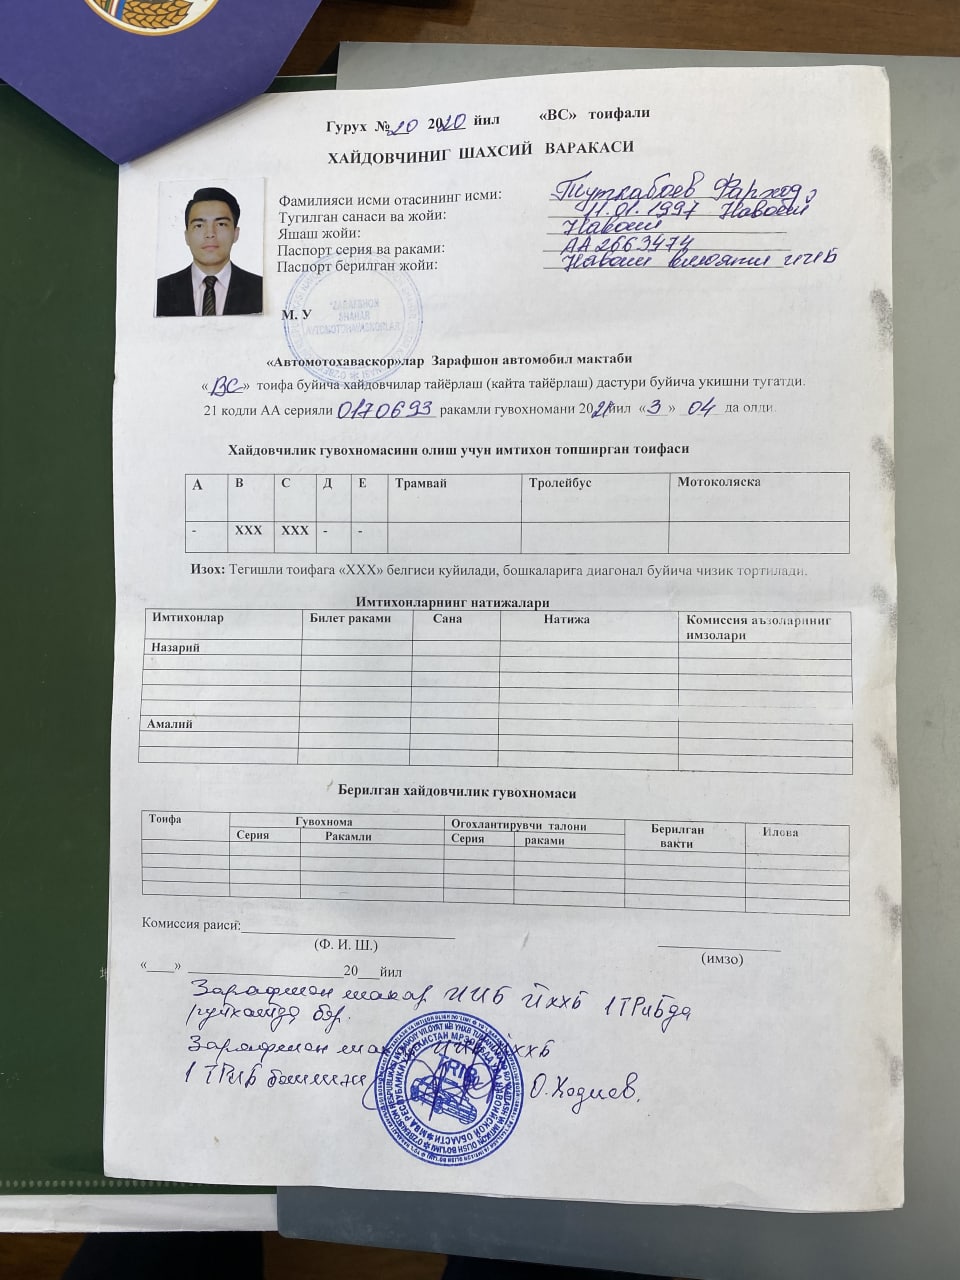 Гурух № 20 2020 йил «ВС» тоифали
ХАЙДОВЧИНИГ ШАХСИЙ ВАРАКАСИ
Фамилияси исми отасининг исми: Туткабоев Фарход
Тугилган санаси ва жойи: 11.01.1997 Навоий
Яшаш жойи: Навоий
Паспорт серия ва раками: АА 2663474
Паспорт берилган жойи: Навоий вилояти ИИБ
М. У
"ZARAFSHON
SHAHAR
AVTOMOTOHAVASKORLAR
«Автомотохаваскор»лар Зарафшон автомобил мактаби
«ВС» тоифа буйича хайдовчилар тайёрлаш (кайта тайёрлаш) дастури буйича укишни тугатди.
21 кодли АА серияли 0170693 ракамли гувохномани 2021йил «3» 04 да олди.
Хайдовчилик гувохномасини олиш учун имтихон топширган тоифаси
А В С Д Е Трамвай Тролейбус Мотоколяска
- ХХХ ХХХ - -
Изох: Тегишли тоифага «ХХХ» белгиси куйилади, бошкаларига диагонал буйича чизик тортилади.
Имтихонларнинг натижалари
Имтихонлар Билет раками Сана Натижа Комиссия аъзоларининг
имзолари
Назарий
Амалий
Берилган хайдовчилик гувохномаси
Тоифа Гувохнома Огохлантирувчи талони Берилган вакти Илова
Серия Ракамли Серия раками
Комиссия раиси:
(Ф. И. Ш.)
(имзо)
«___» ____ 20___йил
Зарафшон шахар ИИБ ЙХХБ 1 ТРИБда
руйхатда бор.
Зарафшон ЙХХБ
1 ТРИБ бошлиги О.Ходиев.